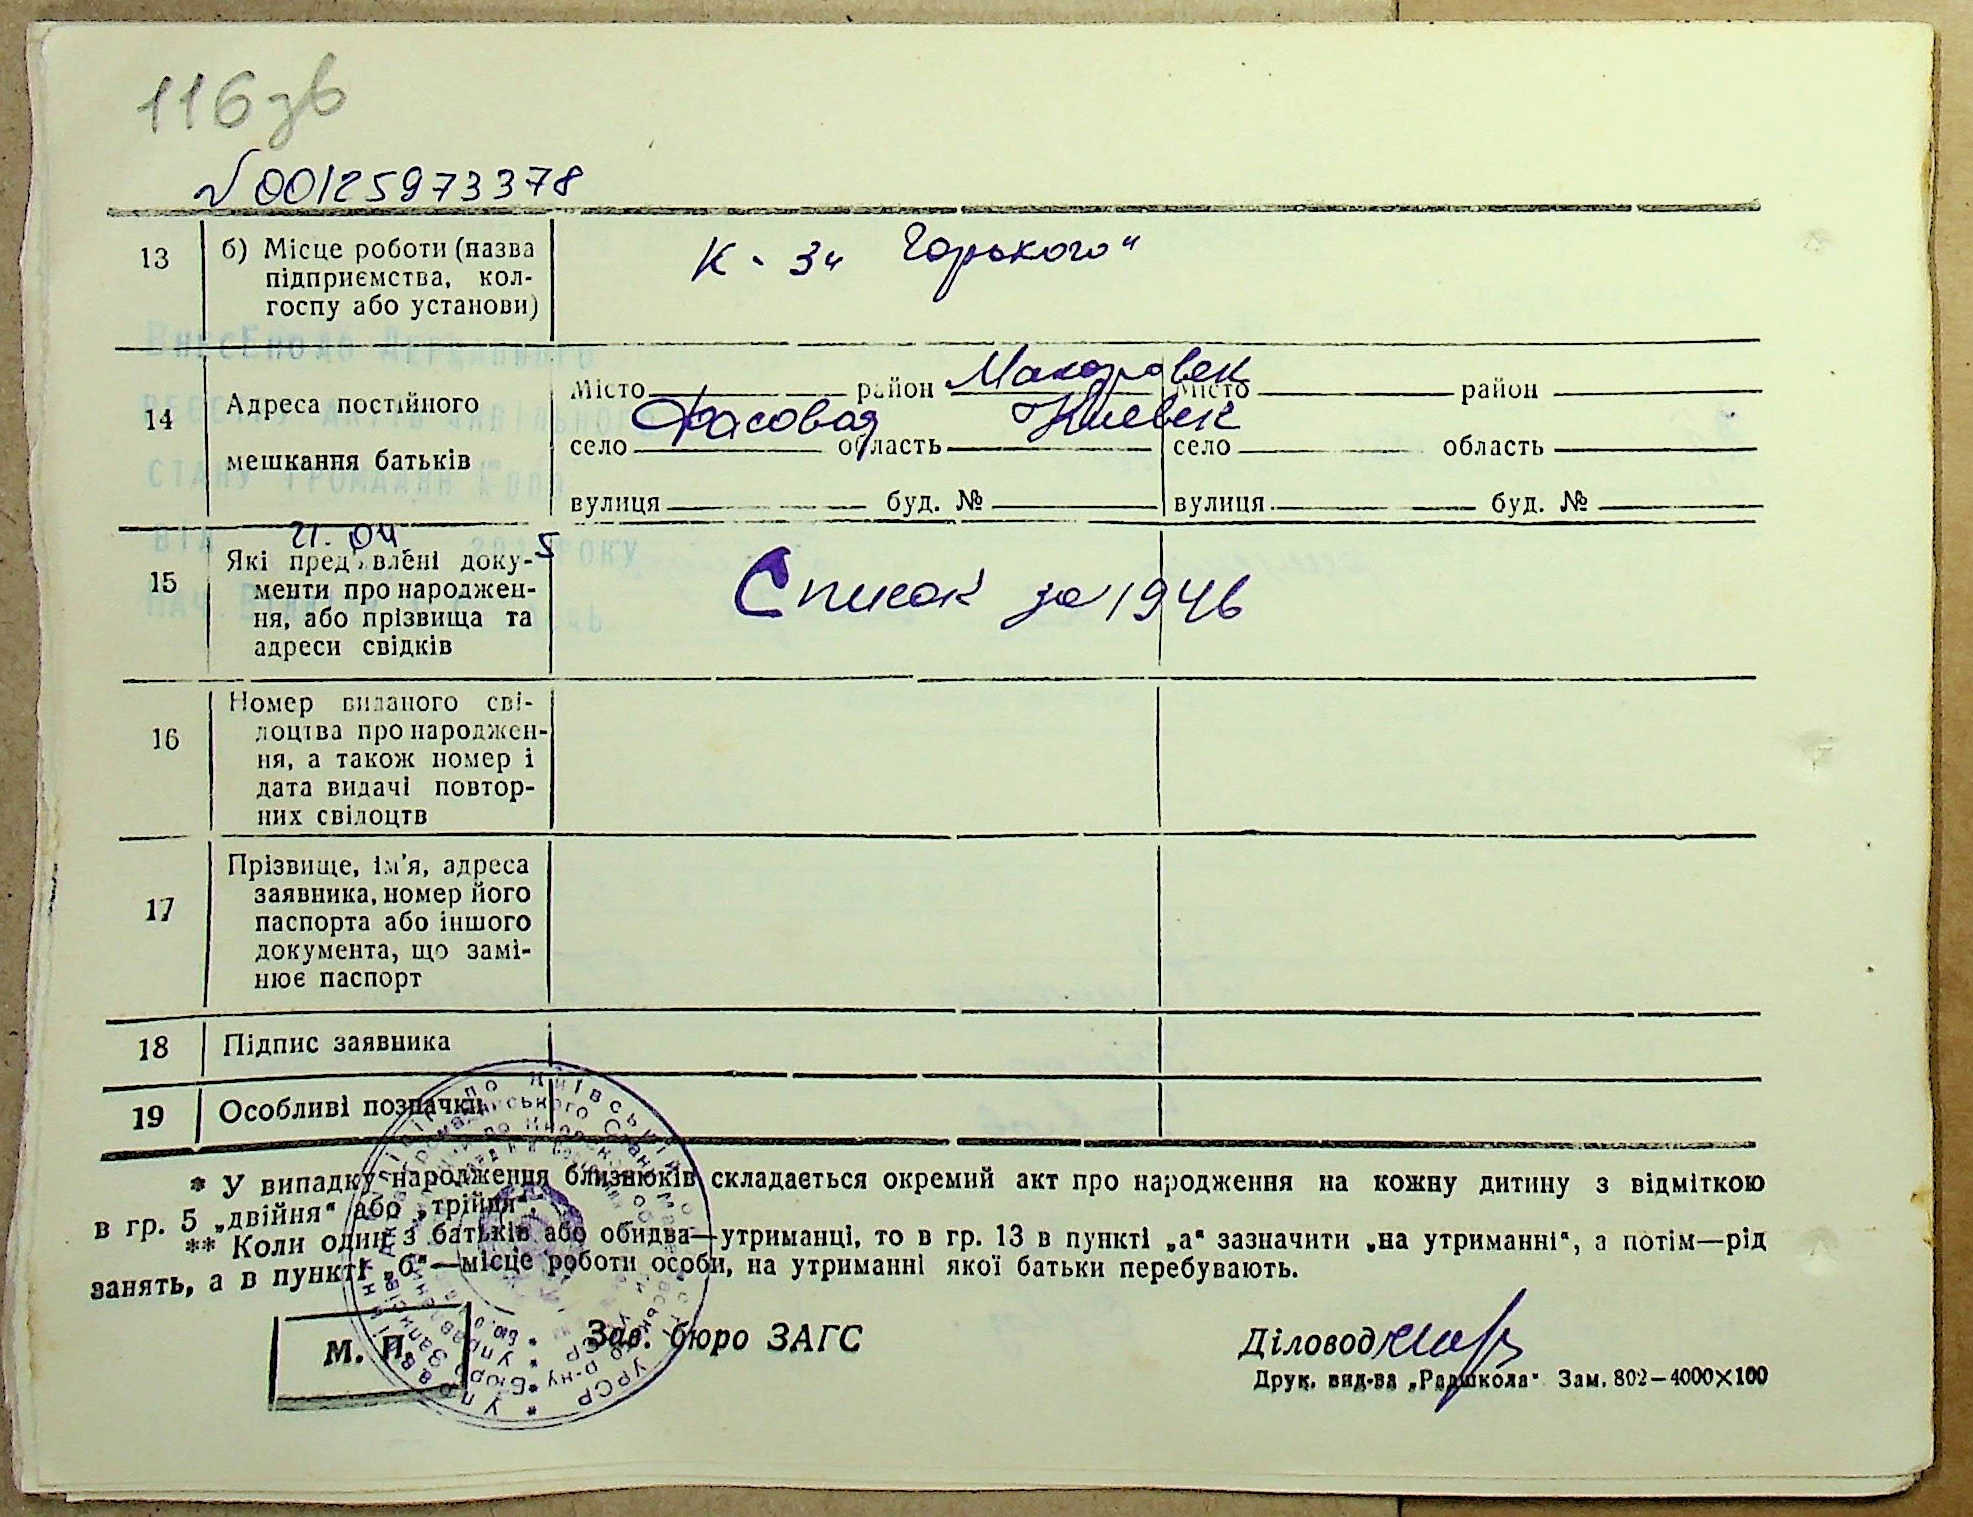 116 зв
№ 00125973378
13
б) Місце роботи (назва
підприємства, кол-
госпу або установи)
К-з „Горького“
Внесено до Державного
реєстру актів цивільного
стану громадян
від 21.04. 2025 року
14
Адреса постійного
мешкання батьків
Місто район Макаровск Місто район
село Фасовая область Киевск село область
вулиця буд. № вулиця буд. №
15
Які пред'явлені доку-
менти про народжен-
ня, або прізвища та
адреси свідків
Список за 1946
16
Номер виданого сві-
доцтва про народжен-
ня, а також номер і
дата видачі повтор-
них свідоцтв
17
Прізвище, ім'я, адреса
заявника, номер його
паспорта або іншого
документа, що замі-
нює паспорт
18 Підпис заявника
19 Особливі позначки
* У випадку народження близнюків складається окремий акт про народження на кожну дитину з відміткою
в гр. 5 „двійня“ або „трійня“.
** Коли один з батьків або обидва—утриманці, то в гр. 13 в пункті „а“ зазначити „на утриманні“, а потім—рід
занять, а в пункті „б“—місце роботи особи, на утриманні якої батьки перебувають.
М. П. Зав. бюро ЗАГС Діловод
Друк. вид-ва „Радшкола“ Зам. 802—4000×100